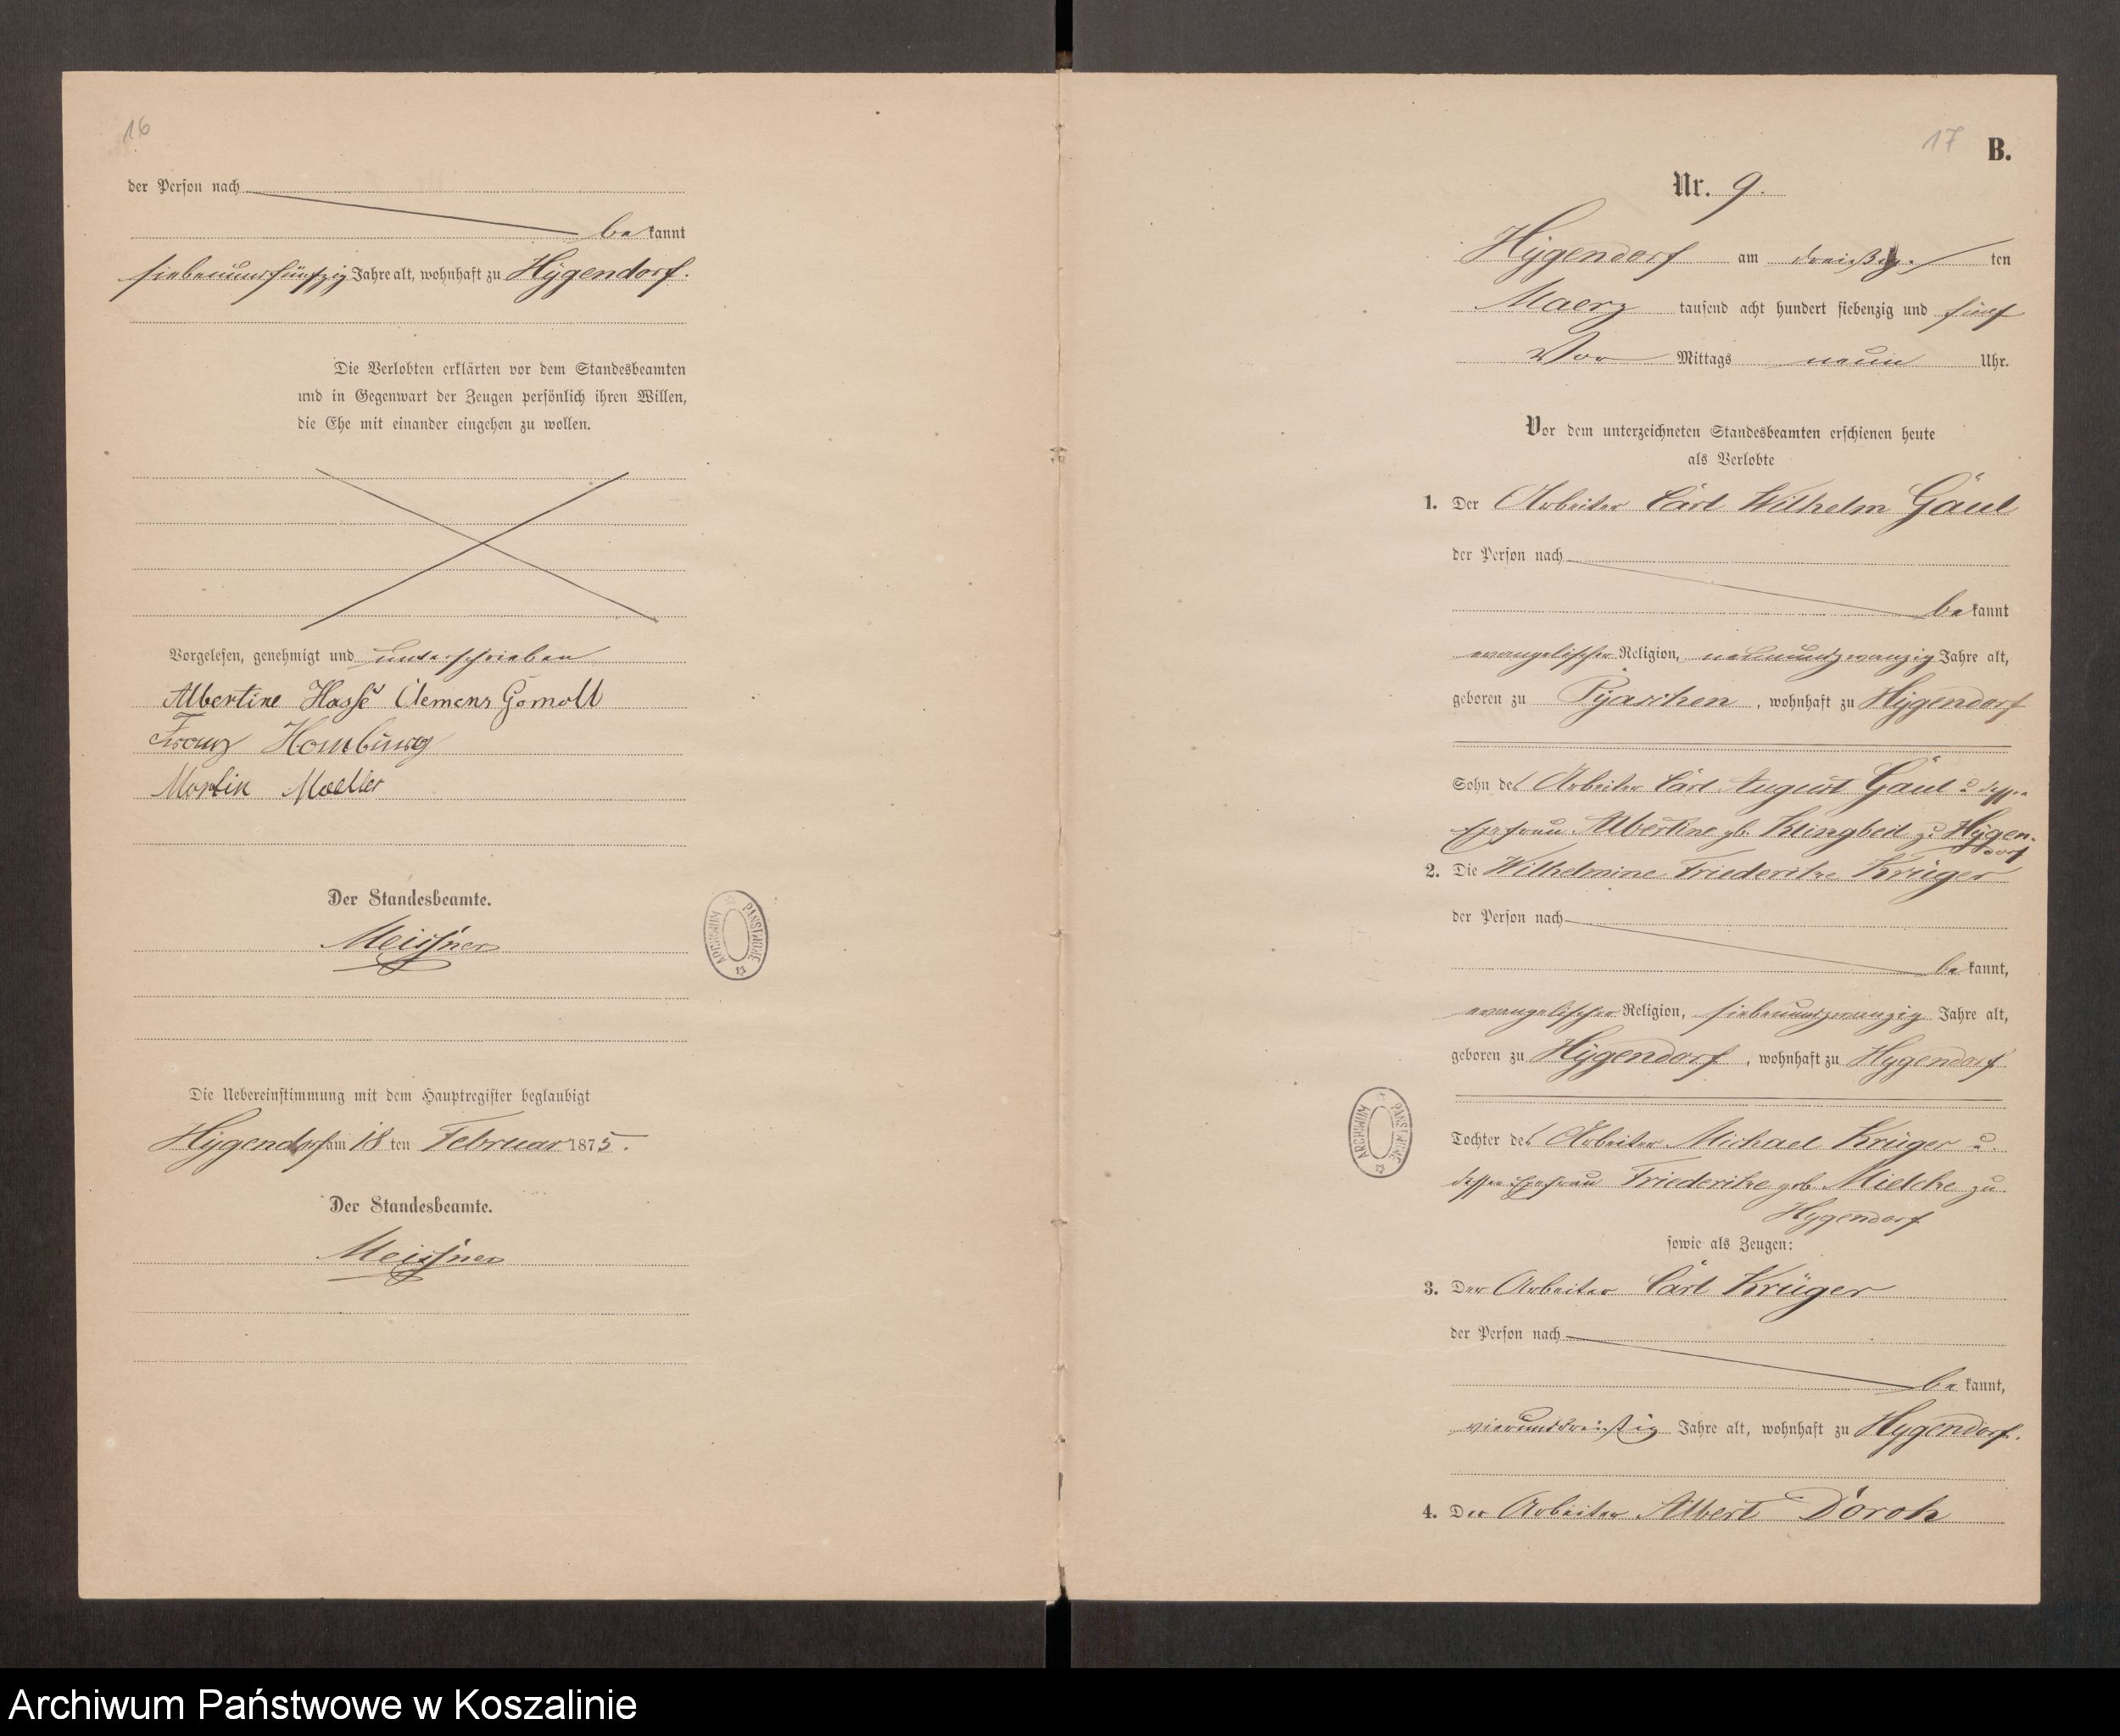 16
der Person nach
bekannt
siebenundfünfzig Jahre alt, wohnhaft zu Hÿgendorf.
Die Verlobten erklärten vor dem Standesbeamten
und in Gegenwart der Zeugen persönlich ihren Willen,
die Ehe mit einander eingehen zu wollen.
Vorgelesen, genehmigt und unterschrieben
Albertine Hasse Clemens Gomoll
Franz Homburg
Martin Moeller
Der Standesbeamte.
Meissner
ARCHIWUM PAŃSTWOWE
Die Uebereinstimmung mit dem Hauptregister beglaubigt
Hÿgendorf am 18 ten Februar 1875.
Der Standesbeamte.
Meissner
17
B.
Nr. 9.
Hÿgendorf am dreißig ten
Maerz tausend acht hundert siebenzig und fünf
Vor Mittags neun Uhr.
Vor dem unterzeichneten Standesbeamten erschienen heute
als Verlobte
1. Der Arbeiter Carl Wilhelm Gaul
der Person nach
bekannt
evangelischer Religion, neunundzwanzig Jahre alt,
geboren zu , wohnhaft zu Hÿgendorf
Sohn des Arbeiter Carl August Gaul u dessen
Ehefrau Albertine gb. Klingbeil zu Hÿgen-
dorf
2. Die Wilhelmine Friederike Krüger
der Person nach
bekannt,
evangelischer Religion, siebenundzwanzig Jahre alt,
geboren zu Hÿgendorf, wohnhaft zu Hygendorf
Tochter des Arbeiter Michael Krüger u.
dessen Ehefrau Friederike geb. Mielcke zu
Hygendorf
sowie als Zeugen:
3. Der Arbeiter Carl Krüger
der Person nach
bekannt,
vierunddreißig Jahre alt, wohnhaft zu Hygendorf.
4. Der Arbeiter Albert Doroh
ARCHIWUM PAŃSTWOWE
Archiwum Państwowe w Koszalinie